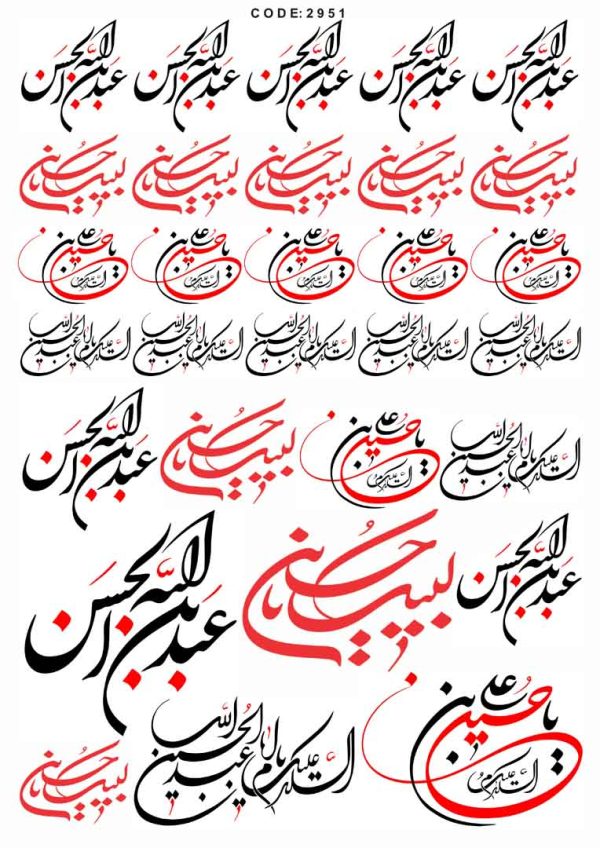 CODE:2951
عبدالله بن الحسن عبدالله بن الحسن عبدالله بن الحسن عبدالله بن الحسن عبدالله بن الحسن
لبیک یا حسین لبیک یا حسین لبیک یا حسین لبیک یا حسین لبیک یا حسین
یا حسین بن علی السلام علیک یا حسین بن علی السلام علیک یا حسین بن علی السلام علیک یا حسین بن علی السلام علیک یا حسین بن علی السلام علیک
السلام علیک یا ابا عبدالله الحسین السلام علیک یا ابا عبدالله الحسین السلام علیک یا ابا عبدالله الحسین السلام علیک یا ابا عبدالله الحسین السلام علیک یا ابا عبدالله الحسین
السلام علیک یا ابا عبدالله الحسین یا حسین بن علی السلام علیک لبیک یا حسین عبدالله بن الحسن
عبدالله بن الحسن لبیک یا حسین عبدالله بن الحسن
یا حسین بن علی السلام علیک السلام علیک یا ابا عبدالله الحسین لبیک یا حسین